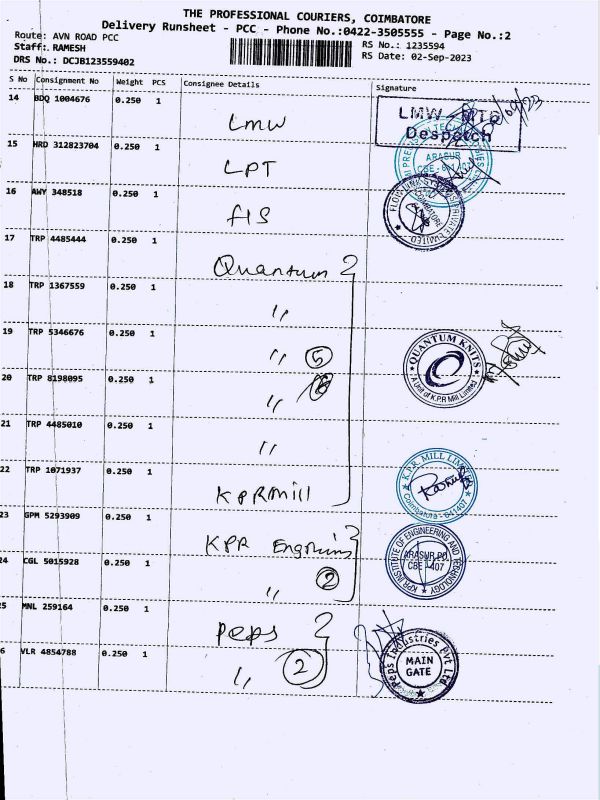 THE PROFESSIONAL COURIERS, COIMBATORE
Delivery Runsheet - PCC - Phone No.:0422-3505555 - Page No.:2
Route: AVN ROAD PCC
RS No.: 1235594
Staff: RAMESH
RS Date: 02-Sep-2023
DRS No.: DCJB123559402
S No Consignment No Weight PCS Consignee Details Signature
14 BDQ 1004676 0.250 1 LMW
LMW - MTD
Despatch
15 HRD 312823704 0.250 1 LPT
ARASUR
CBE - 641 407
16 AWY 348518 0.250 1 FIS
17 TRP 4485444 0.250 1 Quantum
18 TRP 1367559 0.250 1 ,,
19 TRP 5346676 0.250 1 ,, 5
QUANTUM KNITS
A Unit of K.P.R Mill Limited
20 TRP 8198095 0.250 1 ,,
21 TRP 4485010 0.250 1 ,,
22 TRP 1071937 0.250 1 KPRMill
K.P.R. MILL LIMITED
Coimbatore - 641407
23 GPM 5293909 0.250 1 KPR
KPR INSTITUTE OF ENGINEERING AND TECHNOLOGY
ARASUR PO
CBE - 407
24 CGL 5015928 0.250 1 ,, 2
25 MNL 259164 0.250 1 Peps
6 VLR 4854788 0.250 1 ,, 2
Peps Industries Pvt Ltd
MAIN
GATE